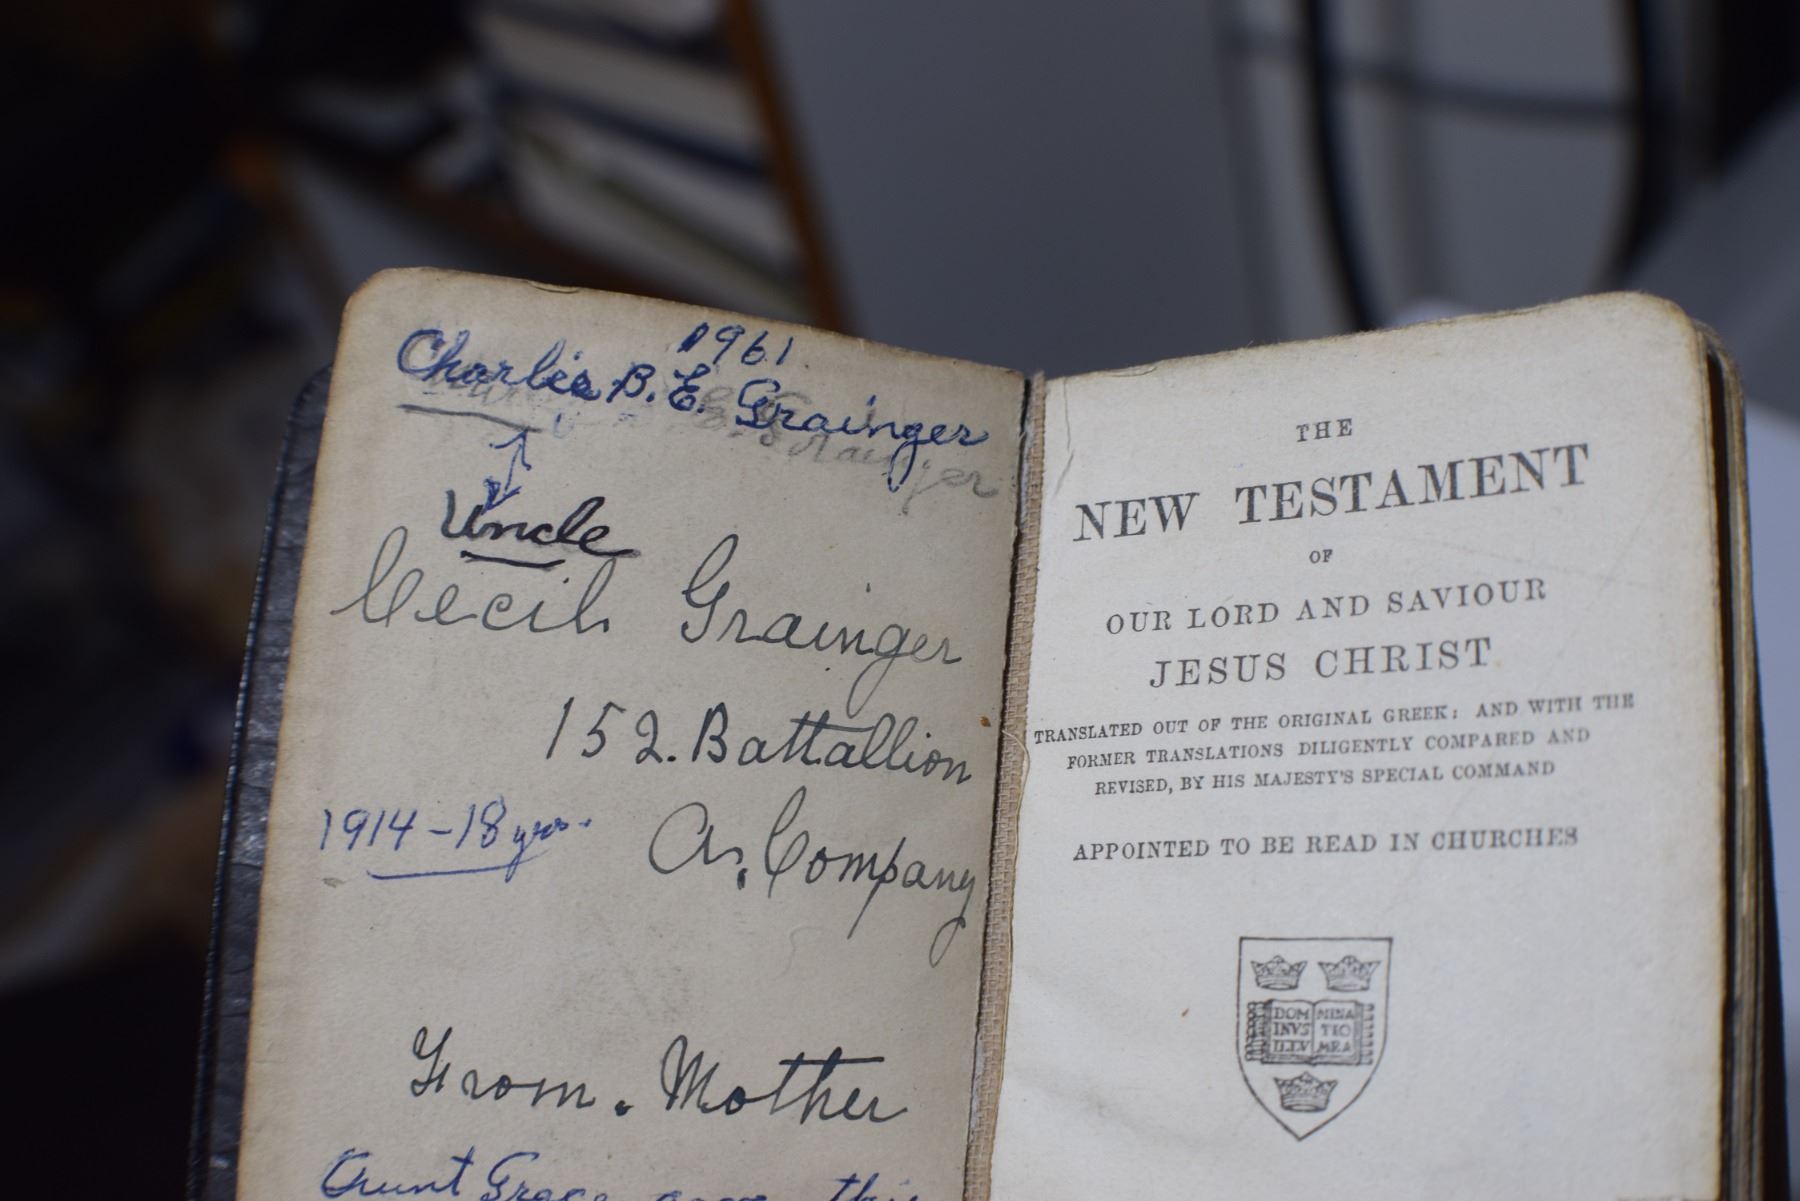 1961
Charlie B. E. Grainger
Uncle
Cecil. Grainger
152. Battallion
1914-18 yrs.
A. Company
From. Mother
Aunt Grace gave this
THE
NEW TESTAMENT
OF
OUR LORD AND SAVIOUR
JESUS CHRIST
TRANSLATED OUT OF THE ORIGINAL GREEK: AND WITH THE
FORMER TRANSLATIONS DILIGENTLY COMPARED AND
REVISED, BY HIS MAJESTY'S SPECIAL COMMAND
APPOINTED TO BE READ IN CHURCHES
DOM MINA
INVS TIO
ILLV MEA